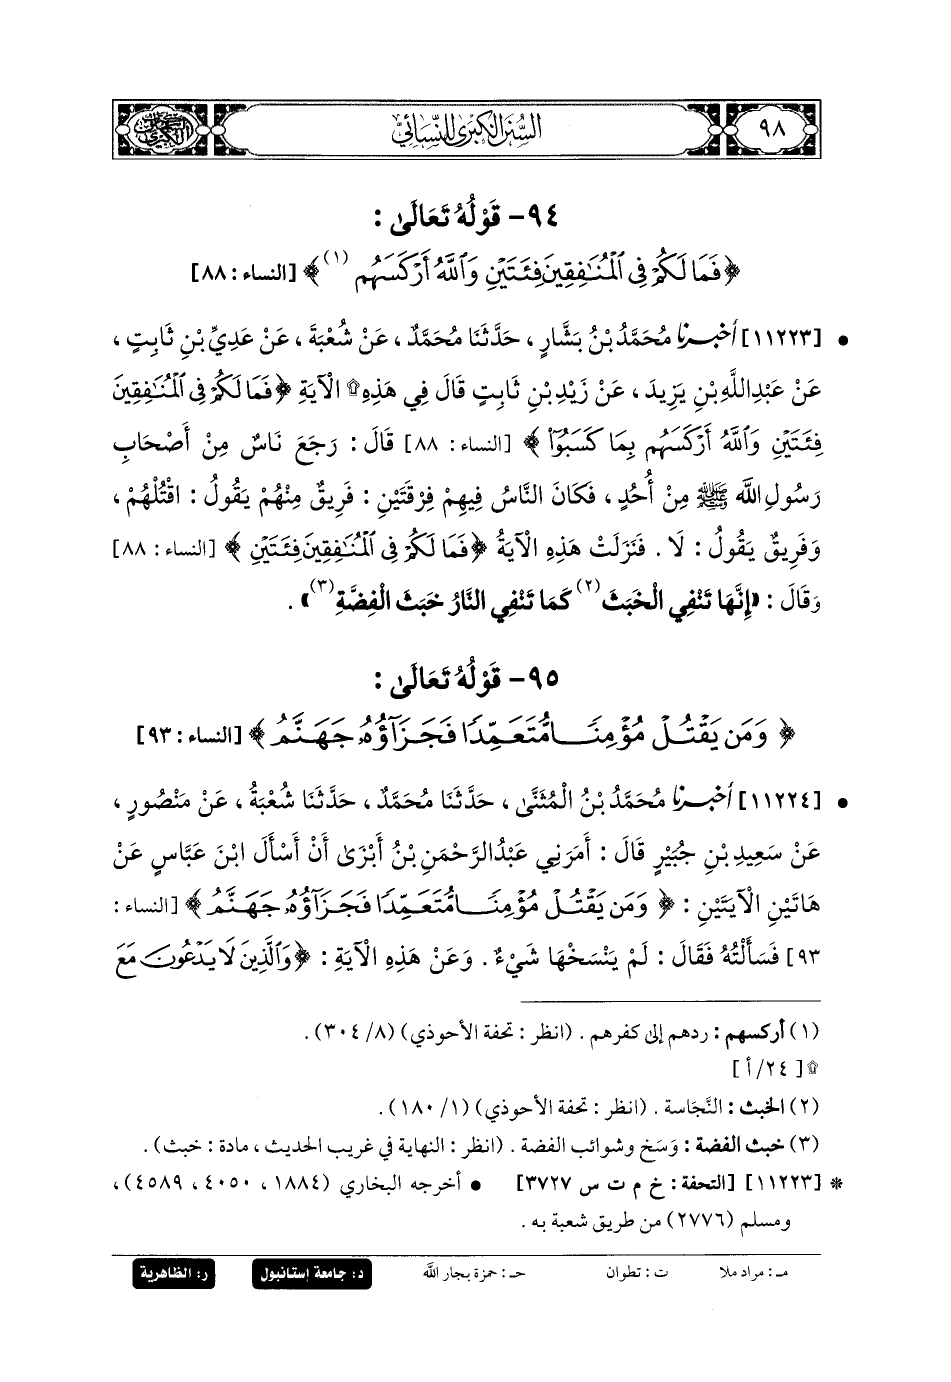 ٩٨
السنن الكبرى للنسائي
السنن الكبرى
٩٤- قَوْلُهُ تَعَالَىٰ :
﴿ فَمَا لَكُمْ فِى ٱلْمُنَـٰفِقِينَ فِئَتَيْنِ وَٱللَّهُ أَرْكَسَهُم (١) ﴾ [النساء : ٨٨]
• [١١٢٢٣] أخبرنا مُحَمَّدُ بْنُ بَشَّارٍ ، حَدَّثَنَا مُحَمَّدٌ ، عَنْ شُعْبَةَ ، عَنْ عَدِيِّ بْنِ ثَابِتٍ ،
عَنْ عَبْدِ اللَّهِ بْنِ يَزِيدَ ، عَنْ زَيْدِ بْنِ ثَابِتٍ قَالَ فِي هَذِهِ۩ الْآيَةِ ﴿ فَمَا لَكُمْ فِى ٱلْمُنَـٰفِقِينَ
فِئَتَيْنِ وَٱللَّهُ أَرْكَسَهُم بِمَا كَسَبُوٓا۟ ﴾ [النساء : ٨٨] قَالَ : رَجَعَ نَاسٌ مِنْ أَصْحَابِ
رَسُولِ اللَّه ﷺ مِنْ أُحُدٍ ، فَكَانَ النَّاسُ فِيهِمْ فِرْقَتَيْنِ : فَرِيقٌ مِنْهُمْ يَقُولُ : اقْتُلْهُمْ ،
وَفَرِيقٌ يَقُولُ : لَا . فَنَزَلَتْ هَذِهِ الْآيَةُ ﴿ فَمَا لَكُمْ فِى ٱلْمُنَـٰفِقِينَ فِئَتَيْنِ ﴾ [النساء : ٨٨]
وَقَالَ : «إِنَّهَا تَنْفِي الْخَبَثَ (٢) كَمَا تَنْفِي النَّارُ خَبَثَ الْفِضَّةِ (٣)» .
٩٥- قَوْلُهُ تَعَالَىٰ :
﴿ وَمَن يَقْتُلْ مُؤْمِنًا مُّتَعَمِّدًا فَجَزَآؤُهُۥ جَهَنَّمُ ﴾ [النساء : ٩٣]
• [١١٢٢٤] أخبرنا مُحَمَّدُ بْنُ الْمُثَنَّىٰ ، حَدَّثَنَا مُحَمَّدٌ ، حَدَّثَنَا شُعْبَةُ ، عَنْ مَنْصُورٍ ،
عَنْ سَعِيدِ بْنِ جُبَيْرٍ قَالَ : أَمَرَنِي عَبْدُ الرَّحْمَنِ بْنُ أَبْزَىٰ أَنْ أَسْأَلَ ابْنَ عَبَّاسٍ عَنْ
هَاتَيْنِ الْآيَتَيْنِ : ﴿ وَمَن يَقْتُلْ مُؤْمِنًا مُّتَعَمِّدًا فَجَزَآؤُهُۥ جَهَنَّمُ ﴾ [النساء :
٩٣] فَسَأَلْتُهُ فَقَالَ : لَمْ يَنْسَخْهَا شَيْءٌ . وَعَنْ هَذِهِ الْآيَةِ : ﴿ وَٱلَّذِينَ لَا يَدْعُونَ مَعَ
(١) أركسهم : ردهم إلى كفرهم . (انظر : تحفة الأحوذي) (٨/ ٣٠٤) .
۩ [ ٢٤/ أ ]
(٢) الخبث : النَّجَاسة . (انظر : تحفة الأحوذي) (١/ ١٨٠) .
(٣) خبث الفضة : وَسَخ وشوائب الفضة . (انظر : النهاية في غريب الحديث ، مادة : خبث) .
* [١١٢٢٣] [التحفة : خ م ت س ٣٧٢٧] • أخرجه البخاري (١٨٨٤ ، ٤٠٥٠ ، ٤٥٨٩) ،
ومسلم (٢٧٧٦) من طريق شعبة به .
مـ : مراد ملا ت : تطوان حـ : حمزة بجار اللَّه د : جامعة إستانبول ر : الظاهرية